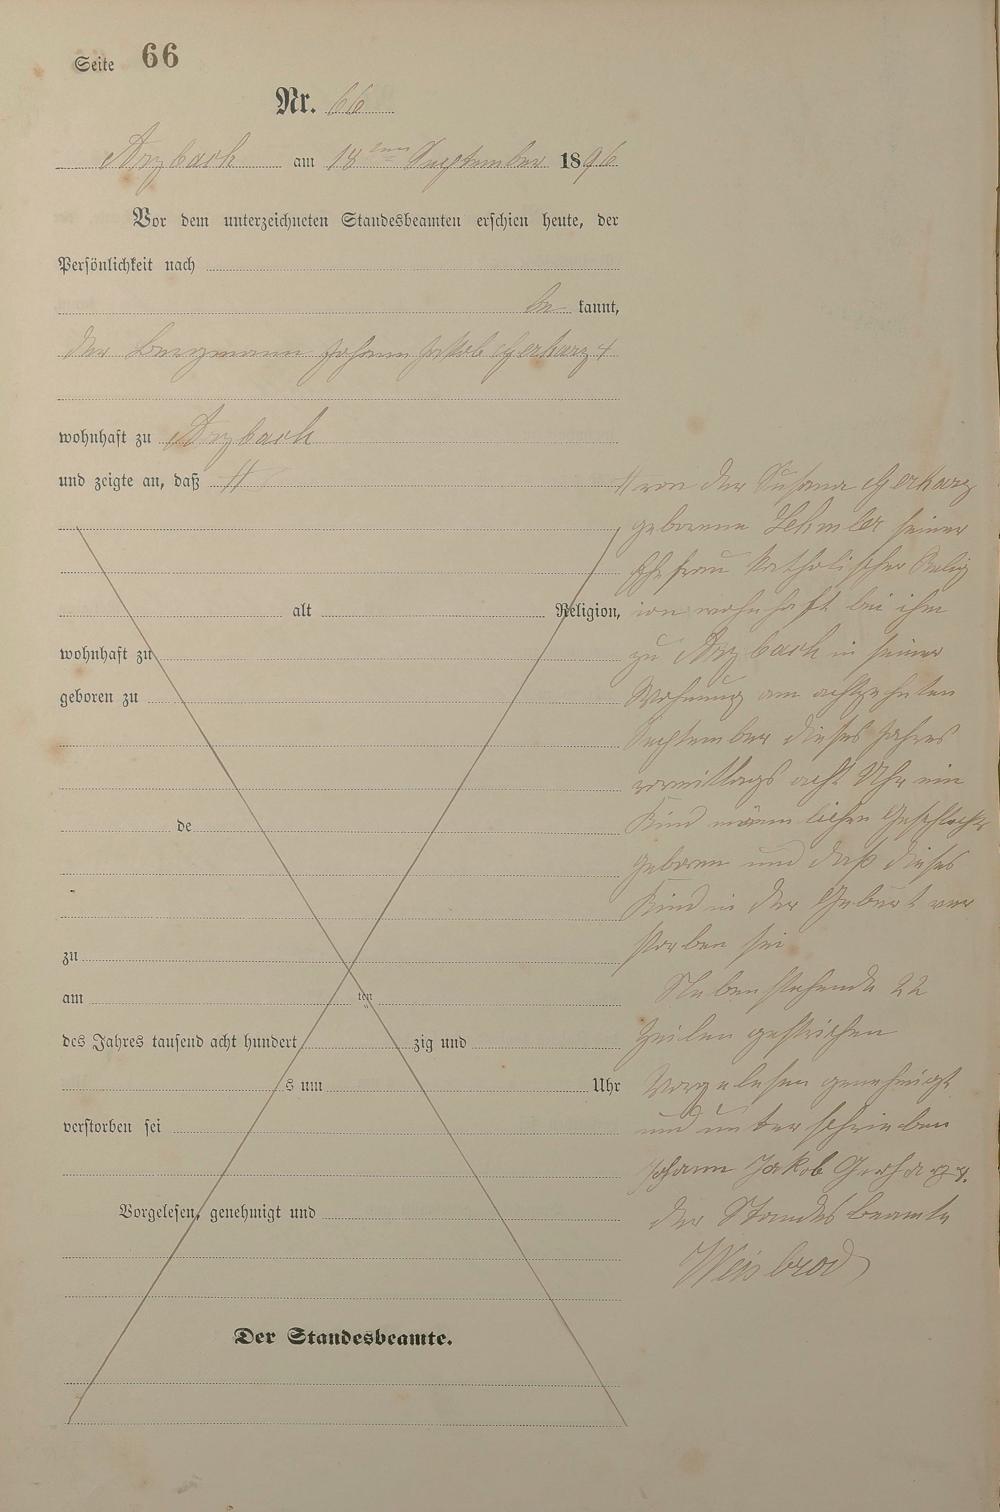 Seite 66
Nr. 66
Arzbach am 18ten September 1896
Vor dem unterzeichneten Standesbeamten erschien heute, der
Persönlichkeit nach
be kannt,
der Bergmann Johann Jakob Gerharz
wohnhaft zu Arzbach
und zeigte an, daß //
alt Religion,
wohnhaft zu
geboren zu
de
zu
am ten
des Jahres tausend acht hundert zig und
s um Uhr
verstorben sei
Vorgelesen, genehmigt und
Der Standesbeamte.
// von der Susana Gerharz
geborenne Lehmler seiner
Ehefrau katholischer Relig
ion wohnhaft bei ihm
zu Arzbach in seiner
Wohnung am achtzehnten
September dieses Jahres
vormittags acht Uhr ein
Kind männlichen Geschlechts
geboren und daß dieses
Kind in der Geburt ver
storben sei
Nebenstehende 22
Zeilen gestrichen
Vorgelesen genehmigt
und unterschrieben
Johann Jakob Gerharz
der Standesbeamte
Weisbrod